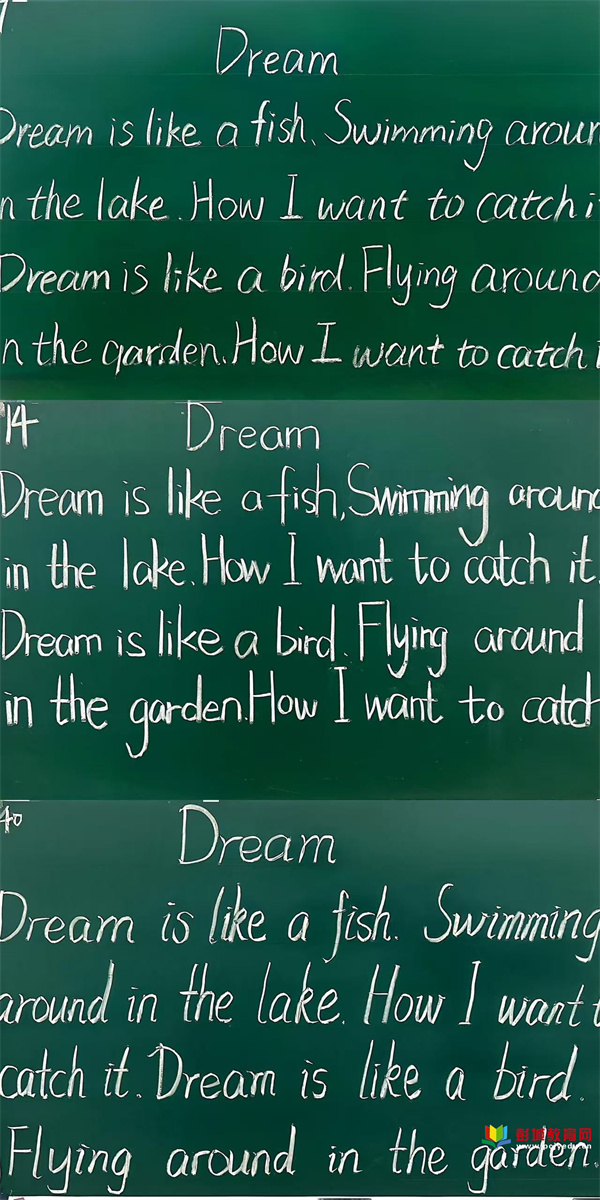 Dream
Dream is like a fish. Swimming aroun
n the lake. How I want to catch i
Dream is like a bird. Flying around
n the garden. How I want to catch i
14
Dream
Dream is like a fish, Swimming around
in the lake. How I want to catch it.
Dream is like a bird. Flying around
in the garden. How I want to catch
40
Dream
Dream is like a fish. Swimming
around in the lake. How I want t
catch it. Dream is like a bird.
Flying around in the garden.
彭城教育网